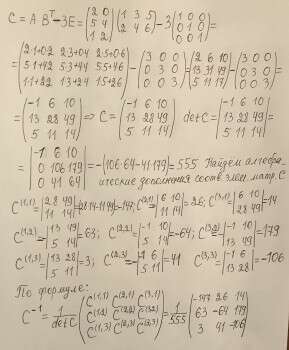 C = A·Bᵀ - 3E = (2 0; 5 4; 1 2)(1 3 5; 2 4 6) - 3(1 0 0; 0 1 0; 0 0 1) =
= (2·1+0·2 2·3+0·4 2·5+0·6; 5·1+4·2 5·3+4·4 5·5+4·6; 1·1+2·2 1·3+2·4 1·5+2·6) - (3 0 0; 0 3 0; 0 0 3) = (2 6 10; 13 31 49; 5 11 17) - (3 0 0; 0 3 0; 0 0 3) =
= (-1 6 10; 13 28 49; 5 11 14) ⇒ C = (-1 6 10; 13 28 49; 5 11 14) det C = |-1 6 10; 13 28 49; 5 11 14| =
= |-1 6 10; 0 106 179; 0 41 64| = -(106·64-41·179) = 555. Найдём алгебраические дополнения соотв. элем. матр. C
C^(1,1) = |28 49; 11 14| = 28·14-11·49 = -147; C^(2,1) = -|6 10; 11 14| = 26; C^(3,1) = |6 10; 28 49| = 14
C^(1,2) = -|13 49; 5 14| = 63; C^(2,2) = |-1 10; 5 14| = -64; C^(3,2) = -|-1 10; 13 49| = 179
C^(1,3) = |13 28; 5 11| = 3; C^(2,3) = -|-1 6; 5 11| = 41 C^(3,3) = |-1 6; 13 28| = -106
По формуле:
C⁻¹ = 1/det C (C^(1,1) C^(2,1) C^(3,1); C^(1,2) C^(2,2) C^(3,2); C^(1,3) C^(2,3) C^(3,3)) = 1/555 (-147 26 14; 63 -64 179; 3 41 -106)